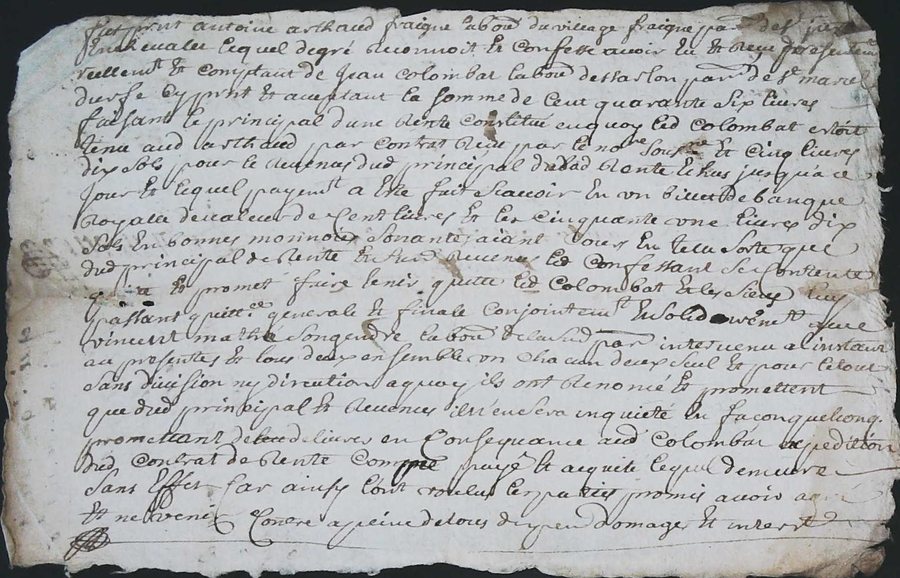 fut prnt antoine arthaud fraigne labour du village fraigne parr de St
En chevalu lequel de gré reconnoit et confesse avoir eu et reçu presentemt
reellemt et comptant de Jean Colombat labour de Sarlon parr de St marcel
durfé cy prnt et aceptant la somme de Cent quarante six livres
faisant le principal dune Rente constitué en quoy led Colombat estoit
tenu aud arthaud par contrat Reçu par le nore soussne et Cinq livres
dix sols pour le Revenus dud principal de lad Rente echus jusqua ce
jour et lequel payemt a esté fait scavoir en un billet de banque
Royalle de valeur de Cent livres et les cinquante une livres dix
sols en bonnes monnoies sonantes aiant Cours en telle sorte que
dud principal de Rente et dud Revenus led Confessant se Contente
et promet faire tenir quitte led Colombat et les siens luy
passant quittce generale et finale conjointemt et solidairemt avec
vincent mathé son gendre labour de lad parr intervenu a linstant
au presentes et tous deux ensemble un Chacun deux seul et pour le tout
sans division ny direction a quoy ils ont Renoncé et promettent
que dud principal et Revenus il nen sera inquieté en façon quelconq
promettant de led delivrer en Consequance aud Colombat expedition
dud Contrat de Rente Comme payé et acquité lequel demeure
sans Effet Car ainsy lont voulu les parties promis avoir agre
et ne venir Contre a peine de tous despend domages et interest